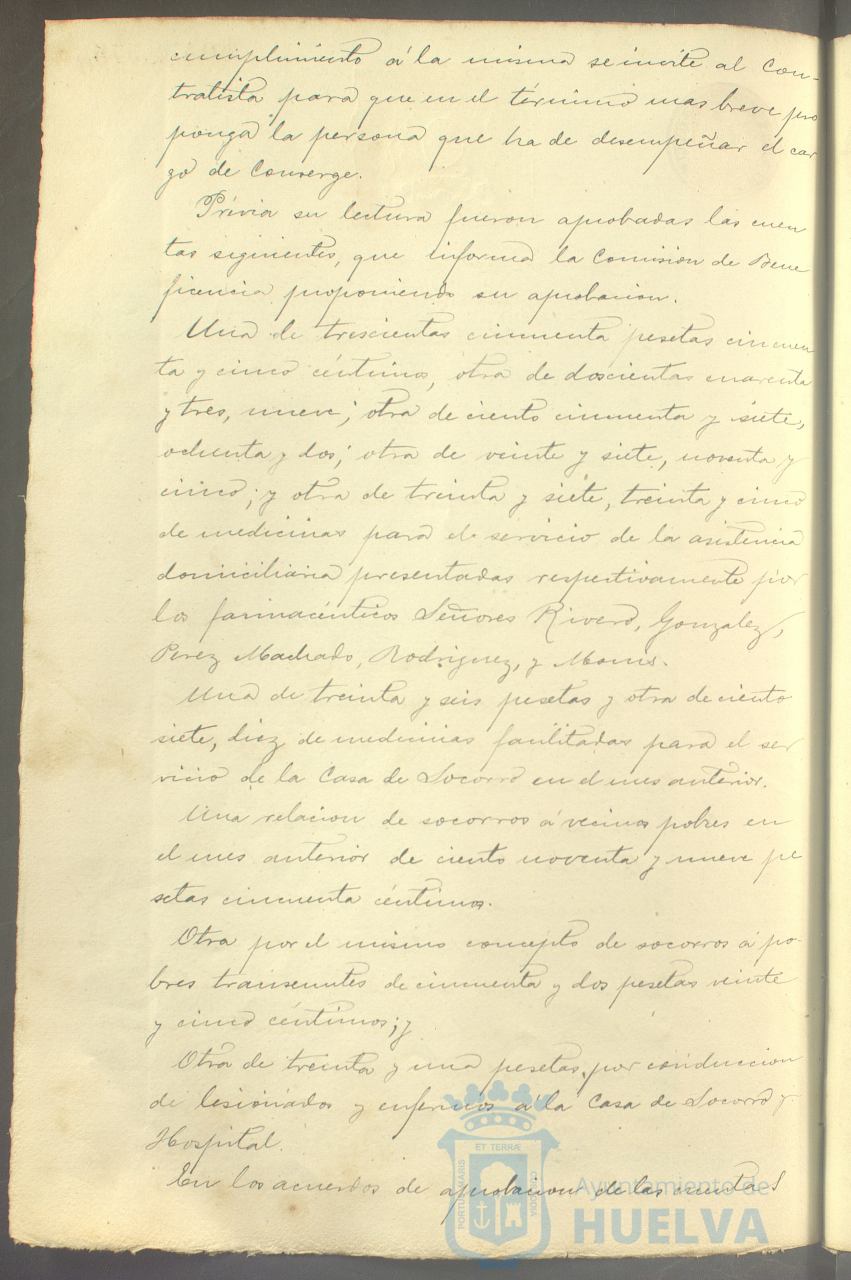 cumplimiento á la misma se invite al Con-
tratista para que en el término mas breve pro
ponga la persona que ha de desempeñar el car
go de Conserge.
Prévia su lectura fueron aprobadas las cuen
tas siguientes, que informa la Comision de Bene
ficencia proponiendo su aprobacion.
Una de trescientas cincuenta pesetas cincuen
ta y cinco céntimos, otra de doscientas cuarenta
y tres, nueve; otra de ciento cincuenta y siete,
ochenta y dos; otra de veinte y siete, noventa y
cinco; y otra de treinta y siete, treinta y cinco
de medicinas para el servicio de la asistencia
domiciliaria presentadas respectivamente por
los farmacéuticos Señores Rivero, Gonzalez,
Perez Machado, Rodriguez, y
Una de treinta y seis pesetas y otra de ciento
siete, diez de medicinas facilitadas para el ser
vicio de la Casa de Socorro en el mes anterior.
Una relacion de socorros á vecinos pobres en
el mes anterior de ciento noventa y nueve pe
setas cincuenta céntimos.
Otra por el mismo concepto de socorros á po-
bres transeuntes de cincuenta y dos pesetas veinte
y cinco céntimos; y
Otra de treinta y una pesetas por conduccion
de lesionados y enfermos á la Casa de Socorro y
Hospital.
En los acuerdos de aprobacion de las cuentas
PORTUS MARIS ET TERRÆ CUSTODIA
Ayuntamiento de
HUELVA